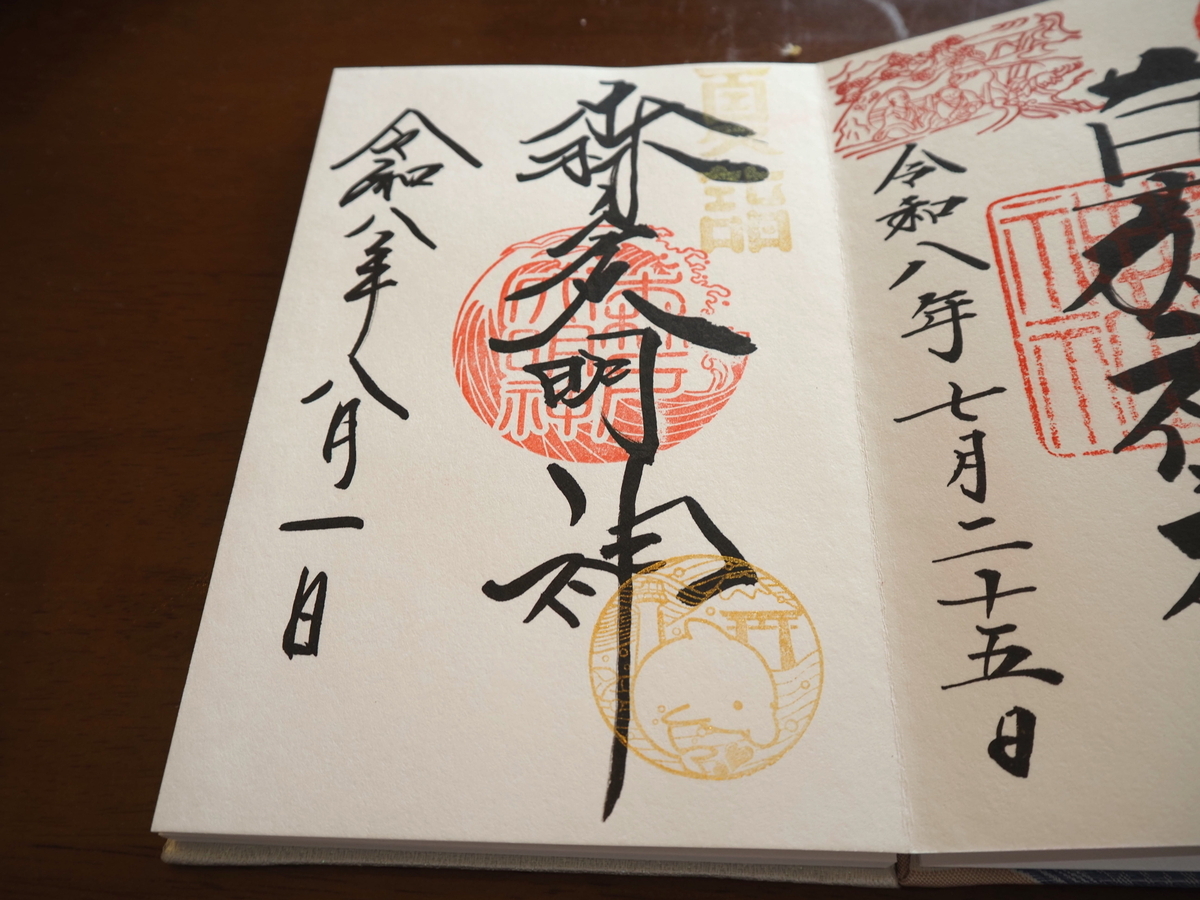 令和八年七月二十五日
夏詣
森戸大明神
令和八年八月一日